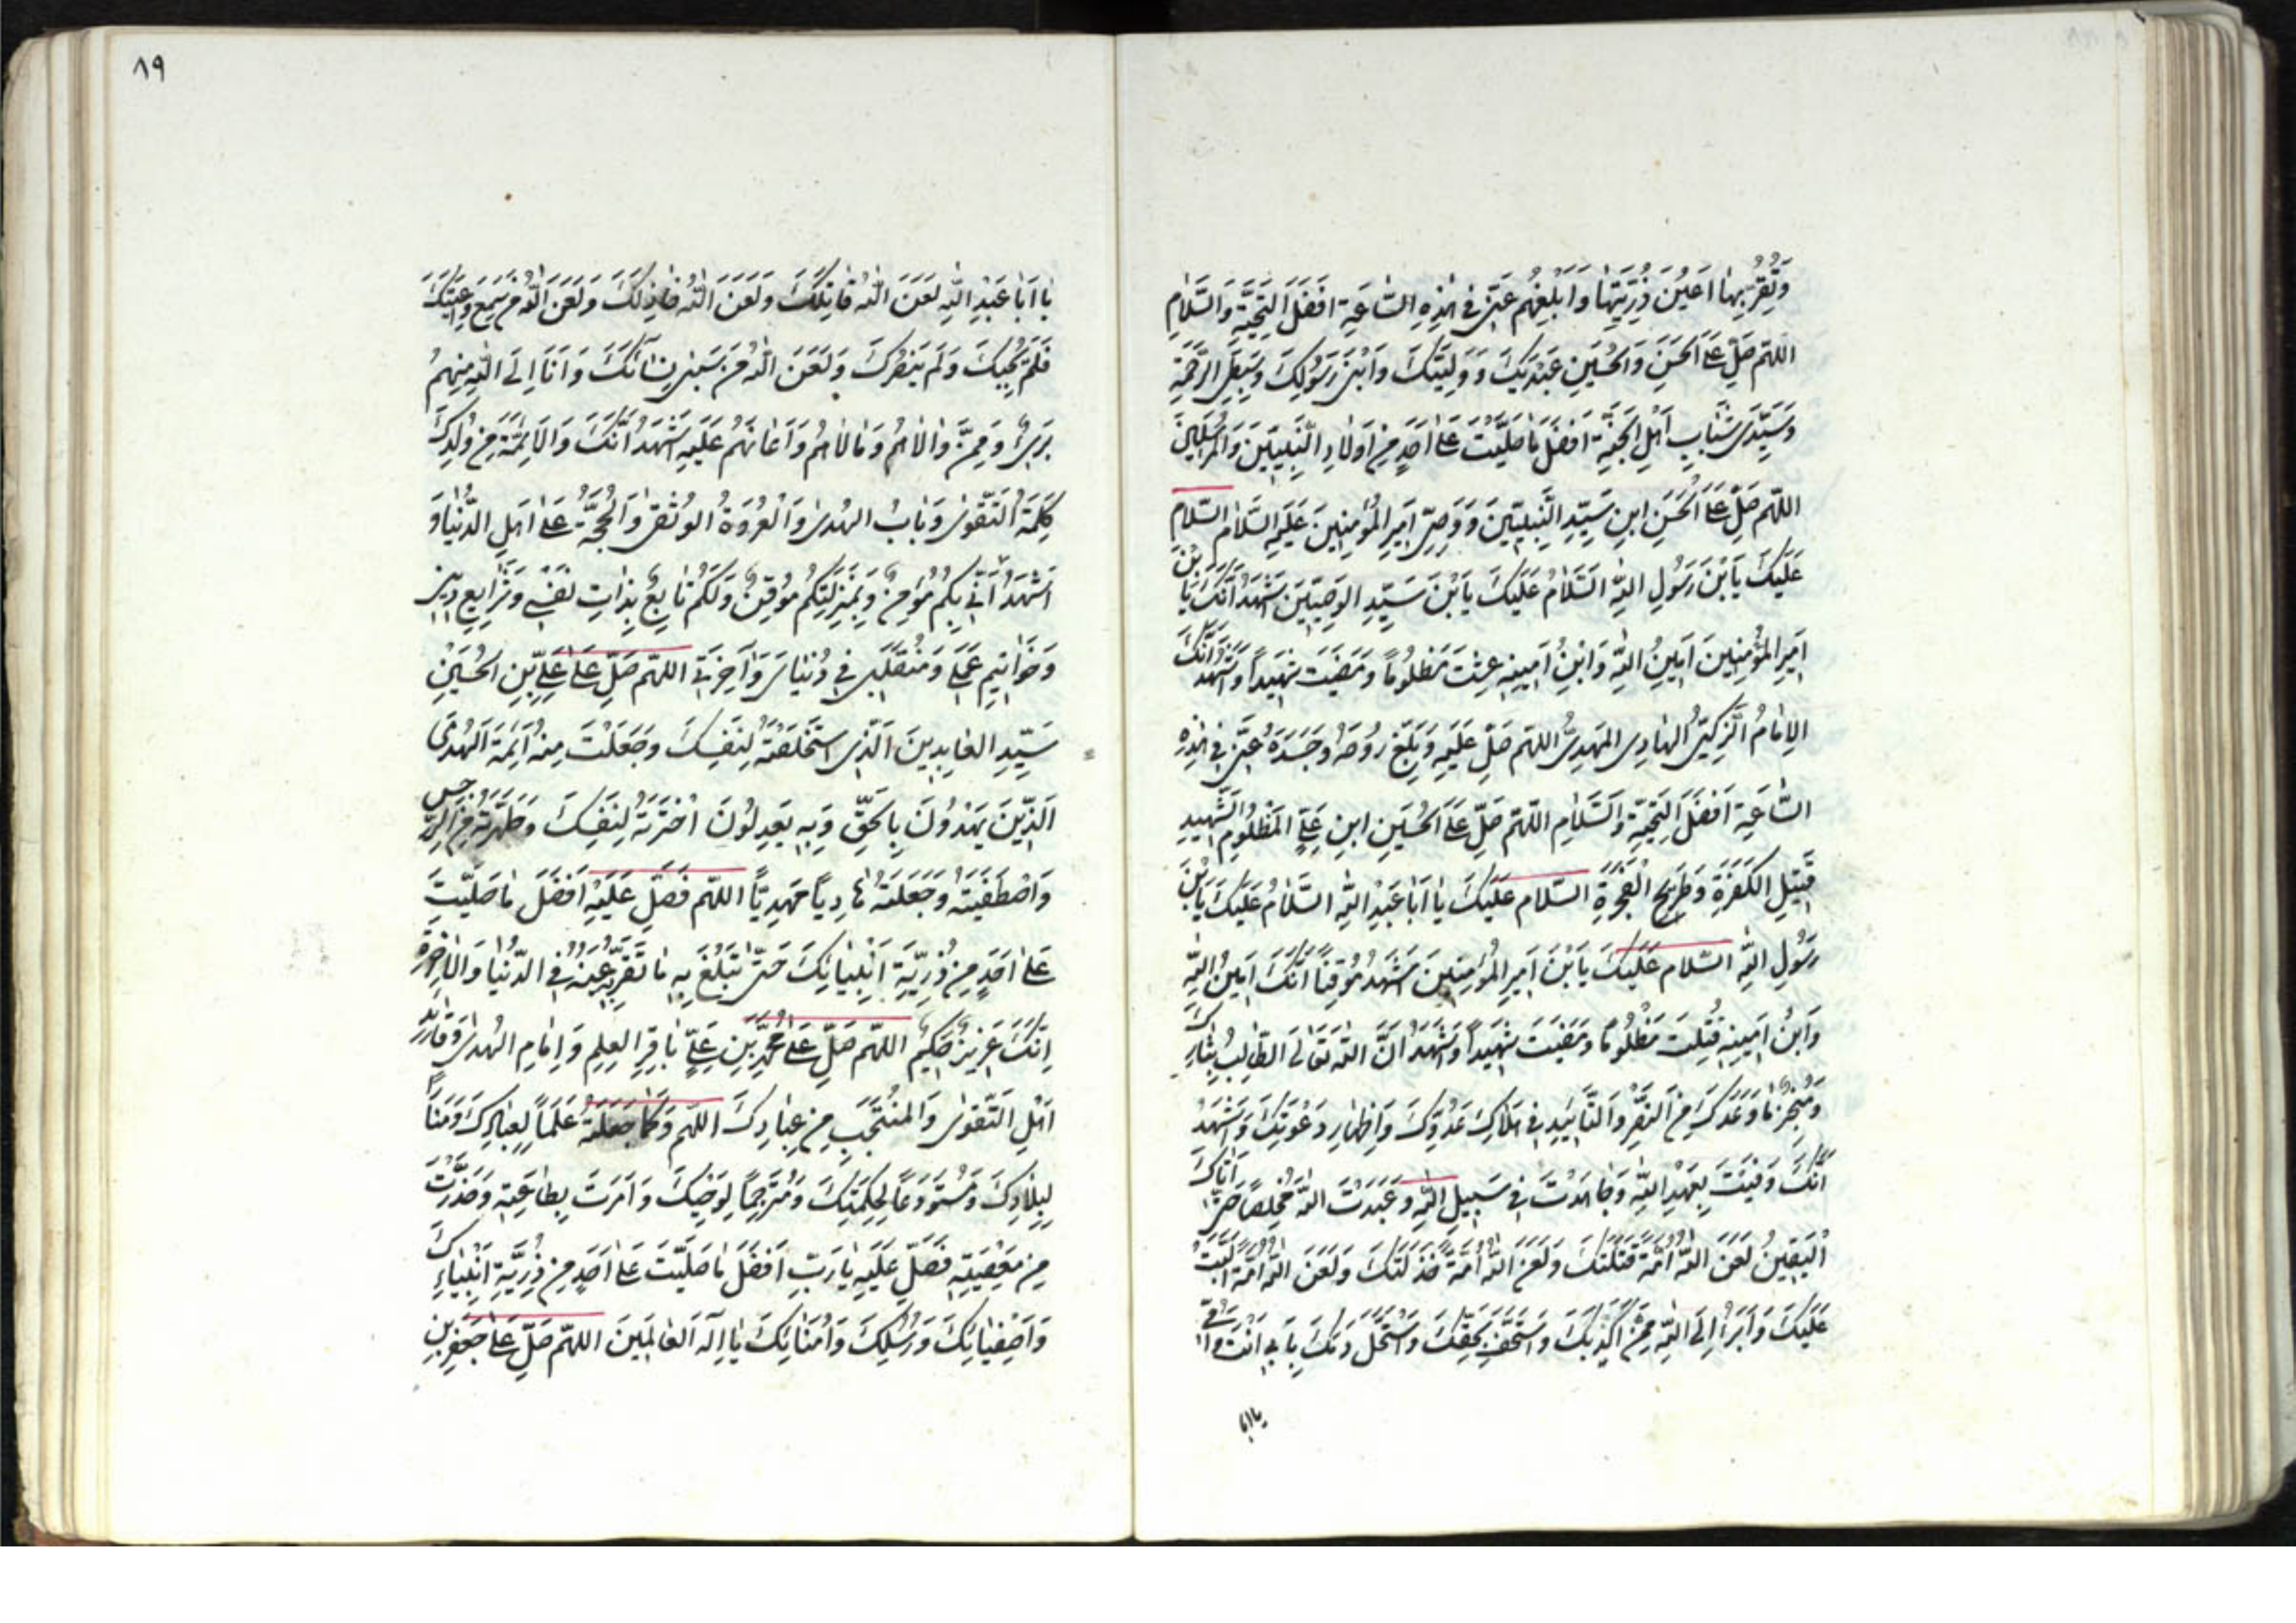 وَتُقِرُّ بِهَا اَعْيُنَ ذُرِّيَّتِهَا وَاَبْلِغْهُمْ عَنّی فی هٰذِهِ السَّاعَةِ اَفْضَلَ التَّحِيَّةِ وَالسَّلٰامِ
اللّهم صَلِّ عَلَی الْحَسَنِ وَالْحُسَيْنِ عَبْدَيْكَ وَوَلِيَّيْكَ وَابْنَیْ رَسُولِكَ وَسِبْطَیِ الرَّحْمَةِ
وَسَيِّدَیْ شَبٰابِ اَهْلِ الْجَنَّةِ اَفْضَلَ مٰا صَلَّيْتَ عَلٰی اَحَدٍ مِنْ اَوْلٰادِ النَّبِيّينَ وَالْمُرْسَلينَ
اللّهم صَلِّ عَلَی الْحَسَنِ ابْنِ سَيِّدِ النَّبِيّينَ وَوَصِیِّ اَميرِ الْمُؤْمِنينَ عَلَيْهِ السَّلٰامُ السَّلٰامُ
عَلَيْكَ يَابْنَ رَسُولِ اللّهِ السَّلٰامُ عَلَيْكَ يَابْنَ سَيِّدِ الْوَصِيّينَ اَشْهَدُ اَنَّكَ يٰا بْنَ
اَميرِ الْمُؤْمِنينَ اَمينُ اللّهِ وَابْنُ اَمينِهِ عِشْتَ مَظْلُومًا وَمَضَيْتَ شَهيدًا وَاَشْهَدُ اَنَّكَ
الْاِمٰامُ الزَّكِیُّ الْهٰادِی الْمَهْدِیُّ اللّهم صَلِّ عَلَيْهِ وَبَلِّغْ رُوحَهُ وَجَسَدَهُ عَنّی فی هٰذِهِ
السّٰاعَةِ اَفْضَلَ التَّحِيَّةِ وَالسَّلٰامِ اللّهم صَلِّ عَلَی الْحُسَيْنِ ابْنِ عَلِیٍّ الْمَظْلُومِ الشَّهيدِ
قَتيلِ الْكَفَرَةِ وَطَريحِ الْفَجَرَةِ السَّلٰام عَلَيْكَ يٰا اَبٰا عَبْدِ اللّهِ السَّلٰامُ عَلَيْكَ يَابْنَ
رَسُولِ اللّهِ السَّلام عَلَيْكَ يَابْنَ اَميرِ الْمُؤْمِنينَ اَشْهَدُ مُوقِنًا اَنَّكَ اَمينُ اللّهِ
وَابْنُ اَمينِهِ قُتِلْتَ مَظْلُومًا وَمَضَيْتَ شَهيدًا وَاَشْهَدُ اَنَّ اللّهَ تَعٰالٰی الطّٰالِبُ بِثٰارِكَ
وَمُنْجِزٌ مٰا وَعَدَكَ مِنَ النَّصْرِ وَالتَّأييدِ فی هَلٰاكِ عَدُوِّكَ وَاِظْهٰارِ دَعْوَتِكَ وَاَشْهَدُ
اَنَّكَ وَفَيْتَ بِعَهْدِ اللّهِ وَجٰاهَدْتَ فی سَبيلِ اللّهِ وَعَبَدْتَ اللّهَ مُخْلِصًا حَتّٰی اَتٰاكَ
الْيَقينُ لَعَنَ اللّهُ اُمَّةً قَتَلَتْكَ وَلَعَنَ اللّهُ اُمَّةً خَذَلَتْكَ وَلَعَنَ اللّهُ اُمَّةً اَلَّبَتْ
عَلَيْكَ وَاَبْرَأُ اِلَی اللّهِ مِمَّنْ اَكْذَبَكَ وَاسْتَخَفَّ بِحَقِّكَ وَاسْتَحَلَّ دَمَكَ بِاَبی اَنْتَ وَاُمّی
يا ابا
٨٩
يٰا اَبٰا عَبْدِ اللّهِ لَعَنَ اللّهُ قٰاتِلَكَ وَلَعَنَ اللّهُ خٰاذِلَكَ وَلَعَنَ اللّهُ مَنْ سَمِعَ وٰاعِيَتَكَ
فَلَمْ يُجِبْكَ وَلَمْ يَنْصُرْكَ وَلَعَنَ اللّهُ مَنْ سَبٰی نِسٰآئَكَ وَاَنَا اِلَی اللّهِ مِنْهُمْ
بَریءٌ وَمِمَّنْ وٰالٰاهُمْ وَمٰالٰاهُمْ وَاَعٰانَهُمْ عَلَيْهِ اَشْهَدُ اَنَّكَ وَالْاَئِمَّةَ مِنْ وُلْدِكَ
كَلِمَةُ التَّقْوٰی وَبٰابُ الْهُدٰی وَالْعُرْوَةُ الْوُثْقٰی وَالْحُجَّةُ عَلٰی اَهْلِ الدُّنْيٰا وَ
اَشْهَدُ اَنّی بِكُمْ مُؤْمِنٌ وَبِمَنْزِلَتِكُمْ مُوقِنٌ وَلَكُمْ تٰابِعٌ بِذٰاتِ نَفْسی وَشَرٰايِعِ دينی
وَخَوٰاتيمِ عَمَلی وَمُنْقَلَبی فی دُنْيٰایَ وَآخِرَتی اللّهم صَلِّ عَلٰی عَلِیِّ بْنِ الْحُسَيْنِ
سَيِّدِ الْعٰابِدينَ الَّذِی اسْتَخْلَصْتَهُ لِنَفْسِكَ وَجَعَلْتَ مِنْهُ اَئِمَّةَ الْهُدَی
الَّذينَ يَهْدُونَ بِالْحَقِّ وَبِهِ يَعْدِلُونَ اخْتَرْتَهُ لِنَفْسِكَ وَطَهَّرْتَهُ مِنَ الرِّجْسِ
وَاصْطَفَيْتَهُ وَجَعَلْتَهُ هٰادِيًا مَهْدِيًّا اللّهم فَصَلِّ عَلَيْهِ اَفْضَلَ مٰا صَلَّيْتَ
عَلٰی اَحَدٍ مِنْ ذُرِّيَّةِ اَنْبِيٰائِكَ حَتّٰی تَبْلُغَ بِهِ مٰا تَقَرُّ بِهِ عَيْنُهُ فِی الدُّنْيٰا وَالْاٰخِرَةِ
اِنَّكَ عَزيزٌ حَكيمٌ اللّهم صَلِّ عَلٰی مُحَمَّدِ بْنِ عَلِیٍّ بٰاقِرِ الْعِلْمِ وَاِمٰامِ الْهُدٰی وَقٰائِدِ
اَهْلِ التَّقْوٰی وَالْمُنْتَجَبِ مِنْ عِبٰادِكَ اللّهم وَكَمٰا جَعَلْتَهُ عَلَمًا لِعِبٰادِكَ وَمَنٰارًا
لِبِلٰادِكَ وَمُسْتَوْدَعًا لِحِكْمَتِكَ وَمُتَرْجِمًا لِوَحْيِكَ وَاَمَرْتَ بِطٰاعَتِهِ وَحَذَّرْتَ
مِنْ مَعْصِيَتِهِ فَصَلِّ عَلَيْهِ يٰا رَبِّ اَفْضَلَ مٰا صَلَّيْتَ عَلٰی اَحَدٍ مِنْ ذُرِّيَّةِ اَنْبِيٰاءِكَ
وَاَصْفِيٰائِكَ وَرُسُلِكَ وَاُمَنٰائِكَ يٰا اِلٰهَ الْعٰالَمينَ اللّهم صَلِّ عَلٰی جَعْفَرِ بْنِ